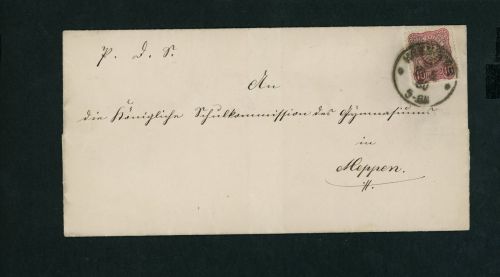 P. d. S.
An
die Königliche Schulkommission des Gymnasiums
in
Meppen.
H.
10
5-6N